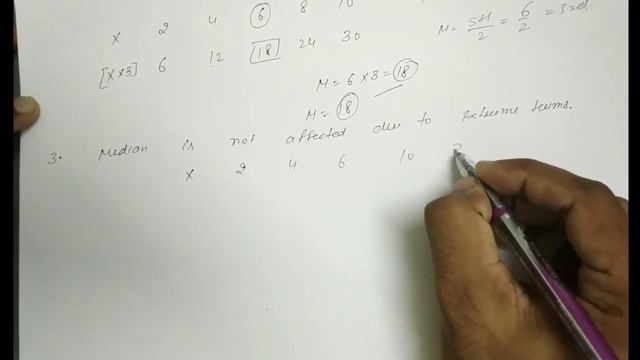 X 2 4 6 8 10
M = 5+1/2 = 6/2 = 3rd
[X×3] 6 12 18 24 30
M = 6 × 3 = 18
M = 18
3. Median is not affected due to extreme terms.
X 2 4 6 10